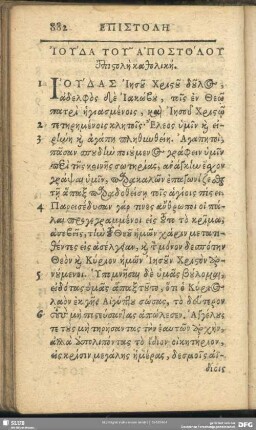 882 ΕΠΙΣΤΟΛΗ
ΙΟΥΔΑ ΤΟΥ ΑΠΟΣΤΟΛΟΥ
Ἐπιστολὴ καθολική.
1 ΙΟΥΔΑΣ Ἰησοῦ Χριστοῦ δοῦλος,
ἀδελφὸς δὲ Ἰακώβου, τοῖς ἐν Θεῷ
πατρὶ ἡγιασμένοις, καὶ Ἰησοῦ Χριστῷ
2 τετηρημένοις κλητοῖς· Ἔλεος ὑμῖν κỳ εἰ-
3 ρήνη κỳ ἀγάπη πληθυνθείη. Ἀγαπητοὶ,
πᾶσαν σπουδὴν ποιούμενος γράφειν ὑμῖν
περὶ τῆς κοινῆς σωτηρίας, ἀνάγκην ἔσχον
γράψαι ὑμῖν, παρακαλῶν ἐπαγωνίζεσθαι
τῇ ἅπαξ παραδοθείσῃ τοῖς ἁγίοις πίστει.
4 Παρεισέδυσαν γάρ τινες ἄνθρωποι οἱ πά-
λαι προγεγραμμένοι εἰς τοῦτο τὸ κρίμα,
ἀσεβεῖς, τὴν τοῦ Θεοῦ ἡμῶν χάριν μετατι-
θέντες εἰς ἀσέλγειαν, κỳ τὸν μόνον δεσπότην
Θεὸν κỳ Κύριον ἡμῶν Ἰησοῦν Χριστὸν ἀρ-
5 νούμενοι. Ὑπομνῆσαι δὲ ὑμᾶς βούλομαι,
εἰδότας ὑμᾶς ἅπαξ τοῦτο, ὅτι ὁ Κύριος
λαὸν ἐκ γῆς Αἰγύπτου σώσας, τὸ δεύτερον
6 τοὺς μὴ πιστεύσαντας ἀπώλεσεν. Ἀγγέλους
τε τοὺς μὴ τηρήσαντας τὴν ἑαυτῶν ἀρχὴν,
ἀλλὰ ἀπολιπόντας τὸ ἴδιον οἰκητήριον,
εἰς κρίσιν μεγάλης ἡμέρας, δεσμοῖς ἀϊ-
δίοις
SLUB
DFG